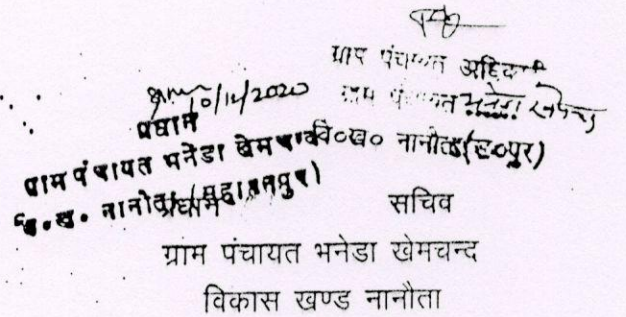 ग्राम पंचायत अधिकारी
10/12/2020 ग्राम पंचायत भनेडा खेमचन्द
प्रधान
ग्राम पंचायत भनेडा खेमचन्द वि०ख० नानौता (स०पुर)
वि.ख. नानौता (सहारनपुर)
प्रधान सचिव
ग्राम पंचायत भनेडा खेमचन्द
विकास खण्ड नानौता